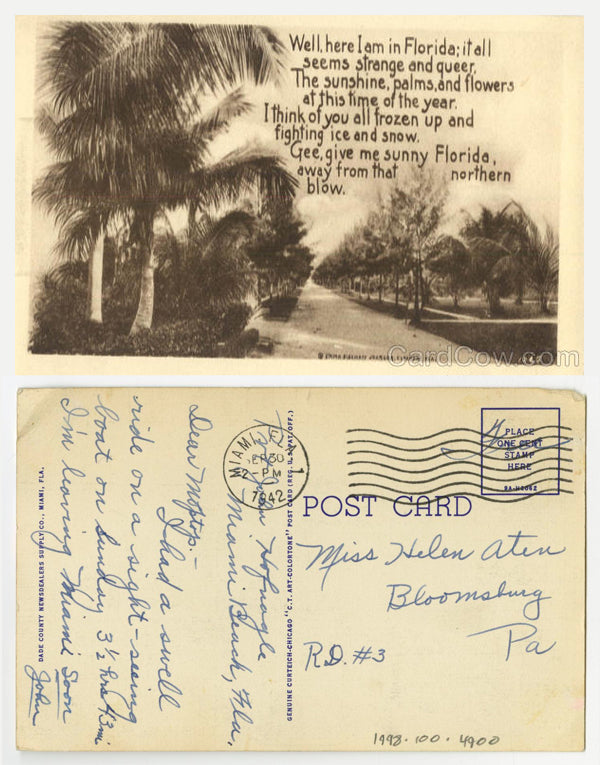 Well, here I am in Florida; it all
seems strange and queer,
The sunshine, palms, and flowers
at this time of the year.
I think of you all frozen up and
fighting ice and snow.
Gee, give me sunny Florida,
away from that northern
blow.
CardCow.com
DADE COUNTY NEWSDEALERS SUPPLY CO., MIAMI, FLA.
John Hofnagle
Miami Beach, Fla.
Dear
I had a swell
ride on a sight-seeing
boat on Sunday 3½ hrs 43 mi.
I'm leaving Miami Soon
John
GENUINE CURTEICH-CHICAGO "C.T. ART-COLORTONE" POST CARD (REG. U.S. PAT. OFF.)
MIAMI, FLA.
30
2-PM
1942
PLACE
ONE CENT
STAMP
HERE
POST CARD
Miss Helen Aten
Bloomsburg
Pa
R.D. #3
1998.100.4900